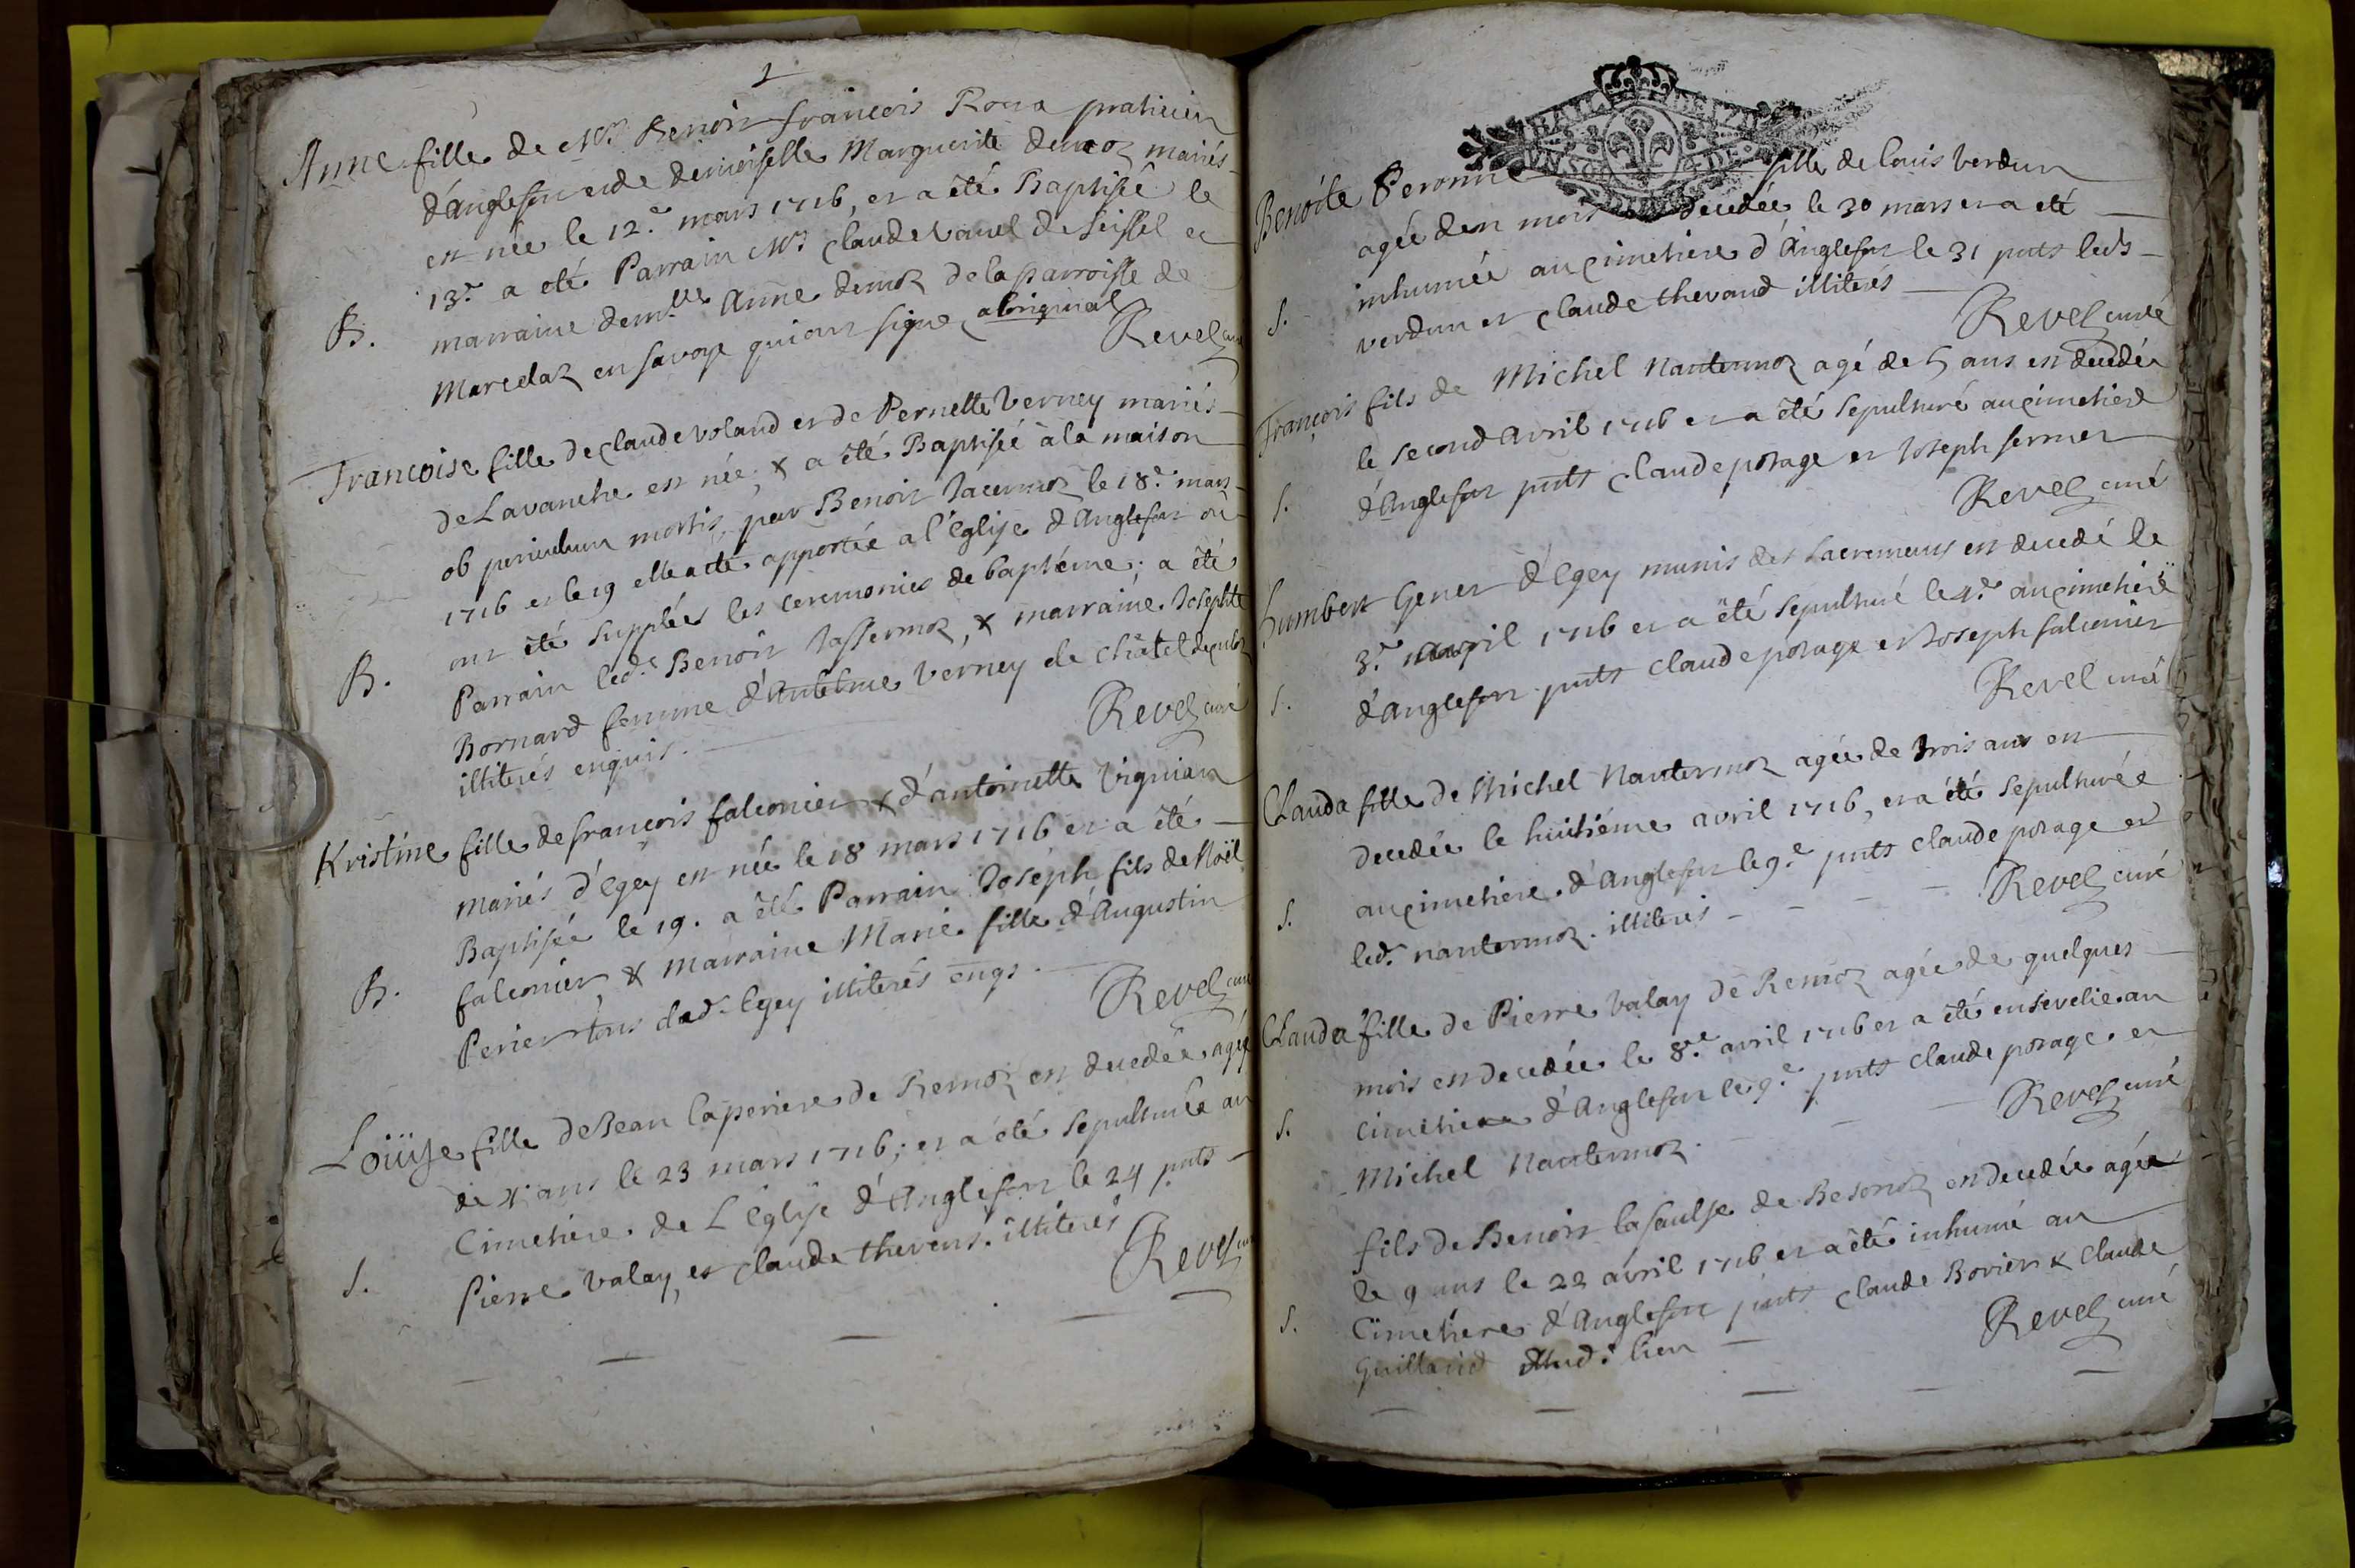 1
Anne fille de Mr Benoit francois Roux praticien
d'Anglefort et de demoiselle Marguerite demoz mariés
est née le 12e mars 1716, et a été Baptisée le
13e a été Parrain Mr Claude vanel de Seissel et
B. marraine demlle Anne demoz de la parroisse de
Marcelaz en savoye qui ont signé a loriginal
Revel curé
Francoise fille de Claude voland et de Pernette Verney mariés
de Lavanche est née, & a été Baptisée à la maison
ob periculum mortis, par Benoit Jacermoz le 18e mars
1716 et le 19 elle a été apportée a l'Eglise d'Anglefort où
ont été supplées les ceremonies de baptême; a été
B. Parrain led. Benoit Jassermoz, & marraine Josephte
Bornard femme d'Antelme Verney de Châtel
illiterés enquis.
Revel curé
Kristine fille de francois falconier & d'antoinette vignian
mariés d'Egey est née le 18 mars 1716 et a été
Baptisée le 19. a été Parrain Joseph fils de Noël
B. falconier, & marraine Marie fille d'Augustin
Perier tous dud. Egey illiterés enqs.
Revel curé
Loüise fille de Jean laperiere de Remoz est decedée agée
de 4 ans le 23 mars 1716; et a été sepulturée au
Cimetiere de L'Eglise d'Anglefort le 24 pnts
S. Pierre valay, et claude thevens. illiterés
Revel curé
Benoite Peronne fille de louis verdun
agée d'un mois decedée le 30 mars et a été
S. inhumée au cimetiere d'Anglefort le 31 pnts led.
verdun et Claude thevand illiterés
Revel curé
François fils de Michel Nantermoz agé de 5 ans est decedée
le second avril 1716 et a été sepulturé au cimetiere
S. d'Anglefort pnts Claude potage et Joseph
Revel curé
humbert Genet d'Egey munis des sacrements est decedé le
3e avril 1716 et a été sepulturé le 4e au cimetiere
S. d'Anglefort pnts Claude potage et Joseph falconier
Revel curé
Clauda fille de Michel Nantermoz agée de trois ans est
decedée le huitiéme avril 1716, et a été sepulturée
S. au cimetiere d'Anglefort le 9e pnts Claude potage et
led. nantermoz. illiterés
Revel curé
Clauda fille de Pierre Valay de Remoz agée de quelques
mois est decedée le 8e avril 1716 et a été ensevelie au
S. cimetiere d'Anglefort le 9e pnts Claude potage et
Michel Nantermoz.
Revel curé
fils de Benoit lasaulse de Besonoz est decedée agée
de 9 ans le 22 avril 1716 et a été inhumé au
S. Cimetiere d'Anglefort pnts Claude Bovier & Claude
Guilland dud. lieu
Revel curé